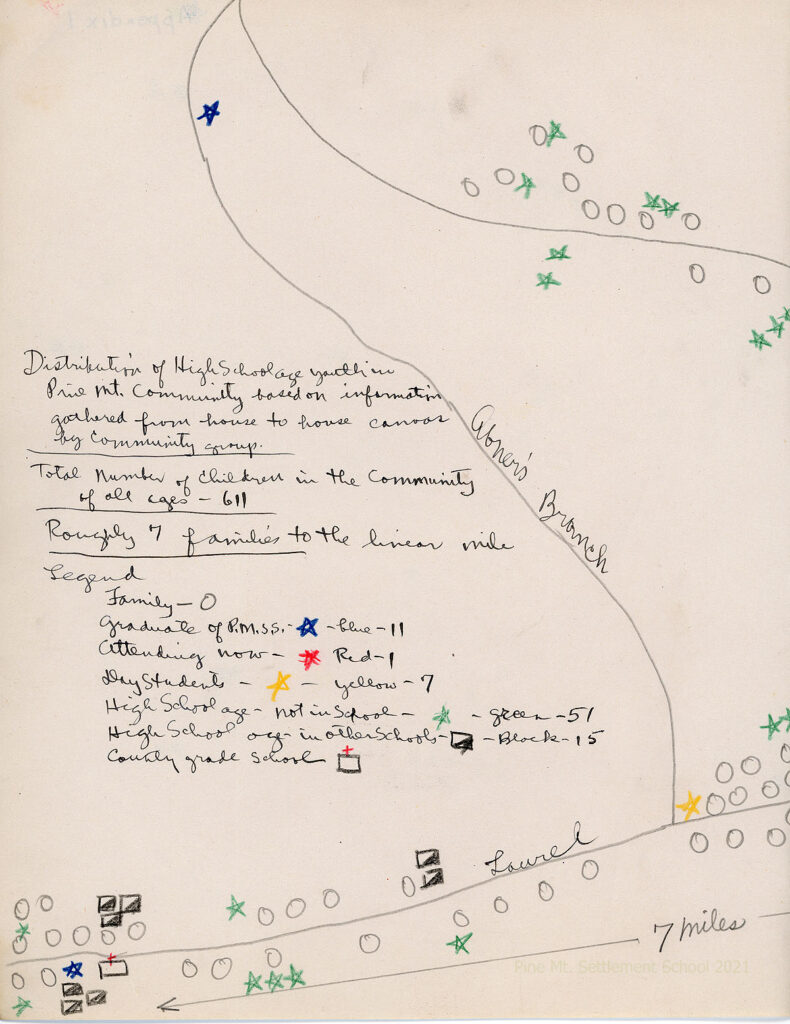 Appendix 1
Distribution of High School age youth in
Pine Mt. Community based on information
gathered from house to house canvas
by Community group.
Total Number of Children in the Community
of all ages - 611
Roughly 7 families to the linear mile
Legend
Family - O
Graduate of P.M.S.S. - - blue - 11
Attending now - Red - 1
Day Students - - yellow - 7
High School age - not in School - - green - 51
High School age in other Schools - - Black - 15
County grade school
Abner's Branch
Laurel
7 miles
Pine Mt. Settlement School 2021